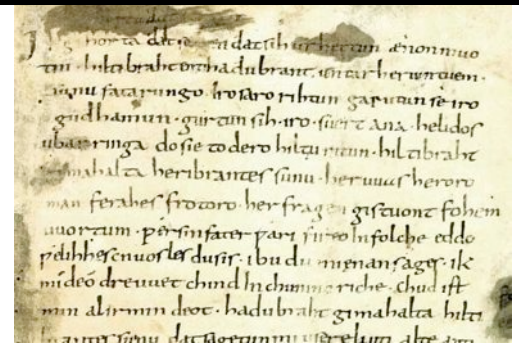 ik gihorta dat seggen dat sih urhettun ænon muo
tin · hiltibraht enti hadubrant · untar heriun tuem ·
sunu fatarungo · iro saro rihtun garutun se iro
gudhamun · gurtun sih · iro · suert ana · helidos
ubar ringa do sie to dero hiltu ritun · hiltibraht
gimahalta heribrantes sunu · her uuas heroro
man ferahes frotoro · her fragen gistuont fohem
uuortum · ƿer sin fater ƿari fireo In folche eddo
ƿelihhes cnuosles du sis · ibu du mi enan sages · ik
mi de o dre uuet chind In chunincriche · chud ist
min al irmin deot · hadubraht gimahalta hilti
brantes sunu dat sagetun mi usere liuti alte anti